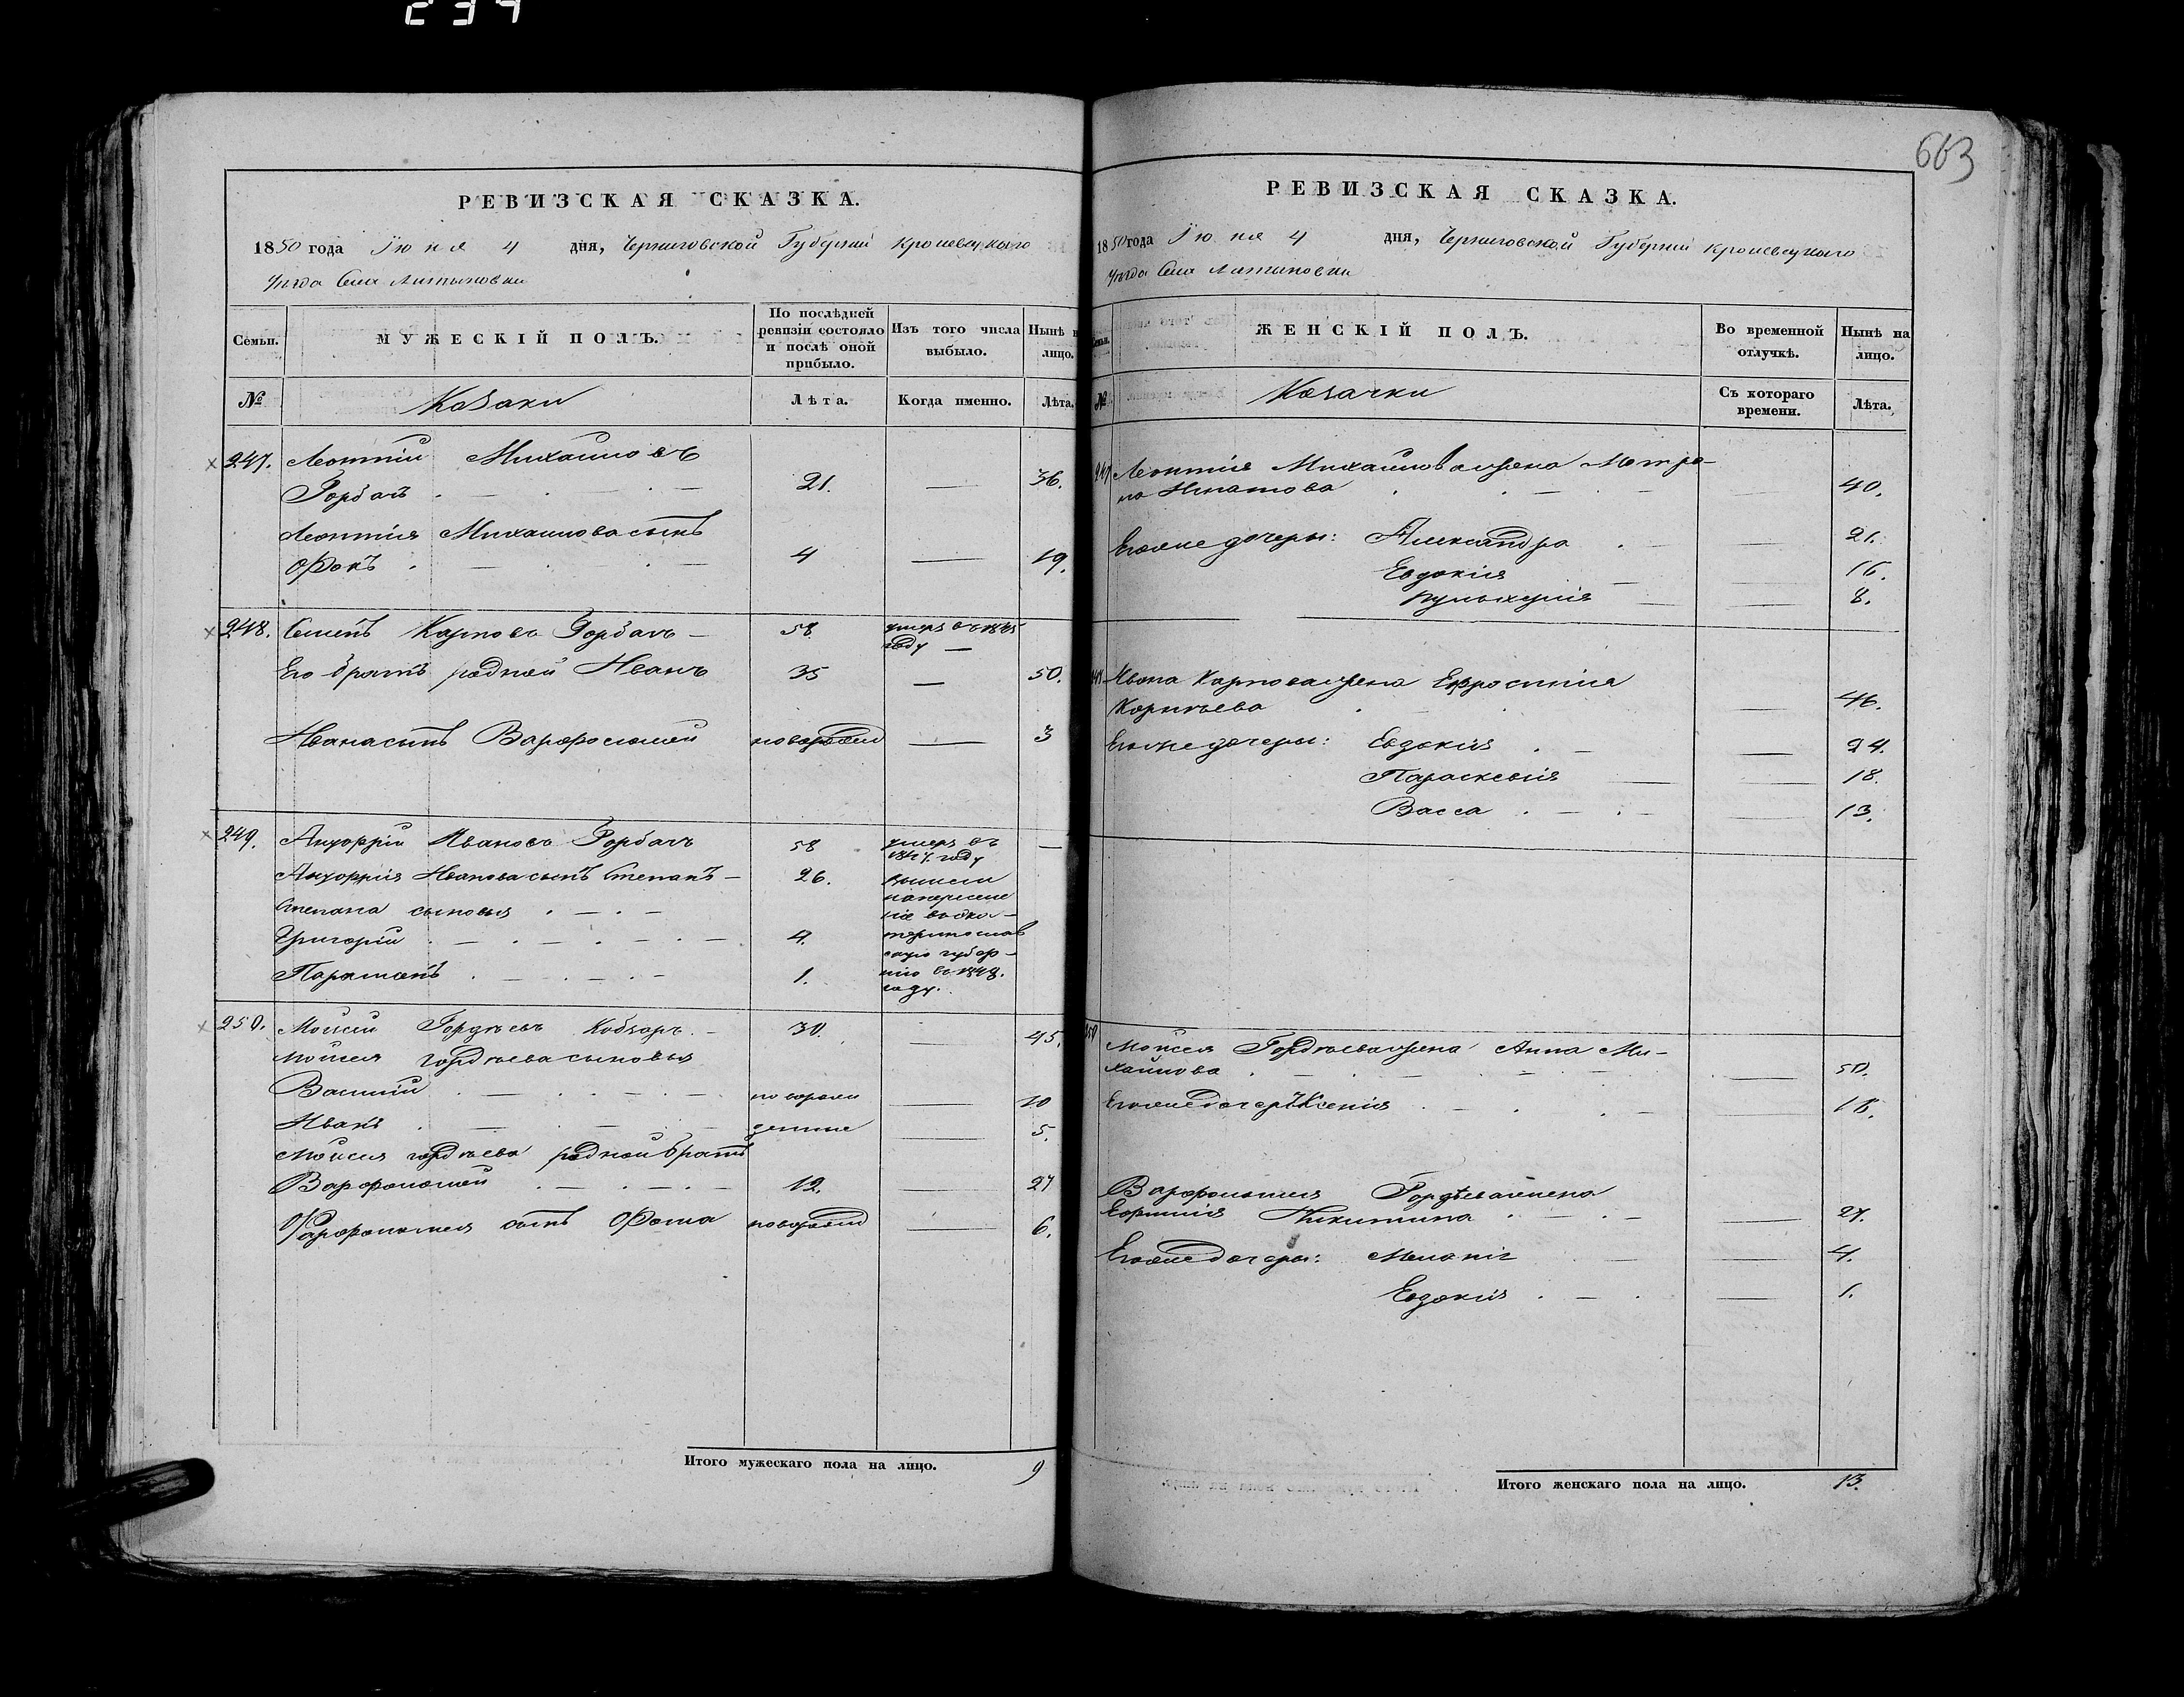 234
РЕВИЗСКАЯ СКАЗКА.
1850 года Іюня 4 дня, Черниговской Губерніи Кролевецкаго
уѣзда Села Литвиновки
Семьи.
МУЖЕСКІЙ ПОЛЪ.
По послѣдней ревизіи состояло и послѣ оной прибыло.
Изъ того числа выбыло.
Нынѣ н лицо.
№
Козаки
Лѣта.
Когда именно.
Лѣта.
247. Леонтій Михайловъ
Горбачъ 21. — 36.
Леонтія Михайлова сынъ
4 — 19.
248. Семенъ Карповъ Горбачъ — 58 умеръ въ 1845
году —
Его братъ родной Иванъ 35 — 50.
Ивана сынъ Варфоломей новорожден — 3
249. Андрій Ивановъ Горбачъ 58 умеръ въ
году —
Ивановасынъ Степанъ — 26.
Степана сыновья
Григорій 4.
губер-
нію въ 1848.
году.
1.
250. Моисей Гордѣевъ Кобзарь 30. — 45.
Моисея Гордѣева сыновья
Василій новорож — 10
Иванъ денные — 5.
Моисея Гордѣева родной братъ
Варфоломей 12. — 27
Варфоломея сынъ Фома новорожден — 6.
Итого мужескаго пола на лицо. 9
663
РЕВИЗСКАЯ СКАЗКА.
1850 года Іюня 4 дня, Черниговской Губерніи Кролевецкаго
уѣзда Села Литвиновки
Семьи.
ЖЕНСКІЙ ПОЛЪ.
Во временной отлучкѣ.
Нынѣ на лицо.
№
Козачки
Съ котораго времени.
Лѣта.
247 Леонтія Михайлова жена Матро-
на Игнатова — 40.
Его же дочеры: Александра — 21.
Евдокія — 16.
Пульхерія — 8.
248 Ивана Карпова жена Ефросинія
Корнѣева — 46.
Его же дочеры: Евдокія — 24.
Параскевія — 18.
Васса — 13.
250 Моисея Гордѣева жена Анна Ми-
хайлова — 50.
Его же дочерь Ксенія — 18.
Варфоломея Гордѣева жена
Никитина — 27.
Его же дочеры: Меланія — 4.
Евдокія — 1.
Итого женскаго пола на лицо. 13.